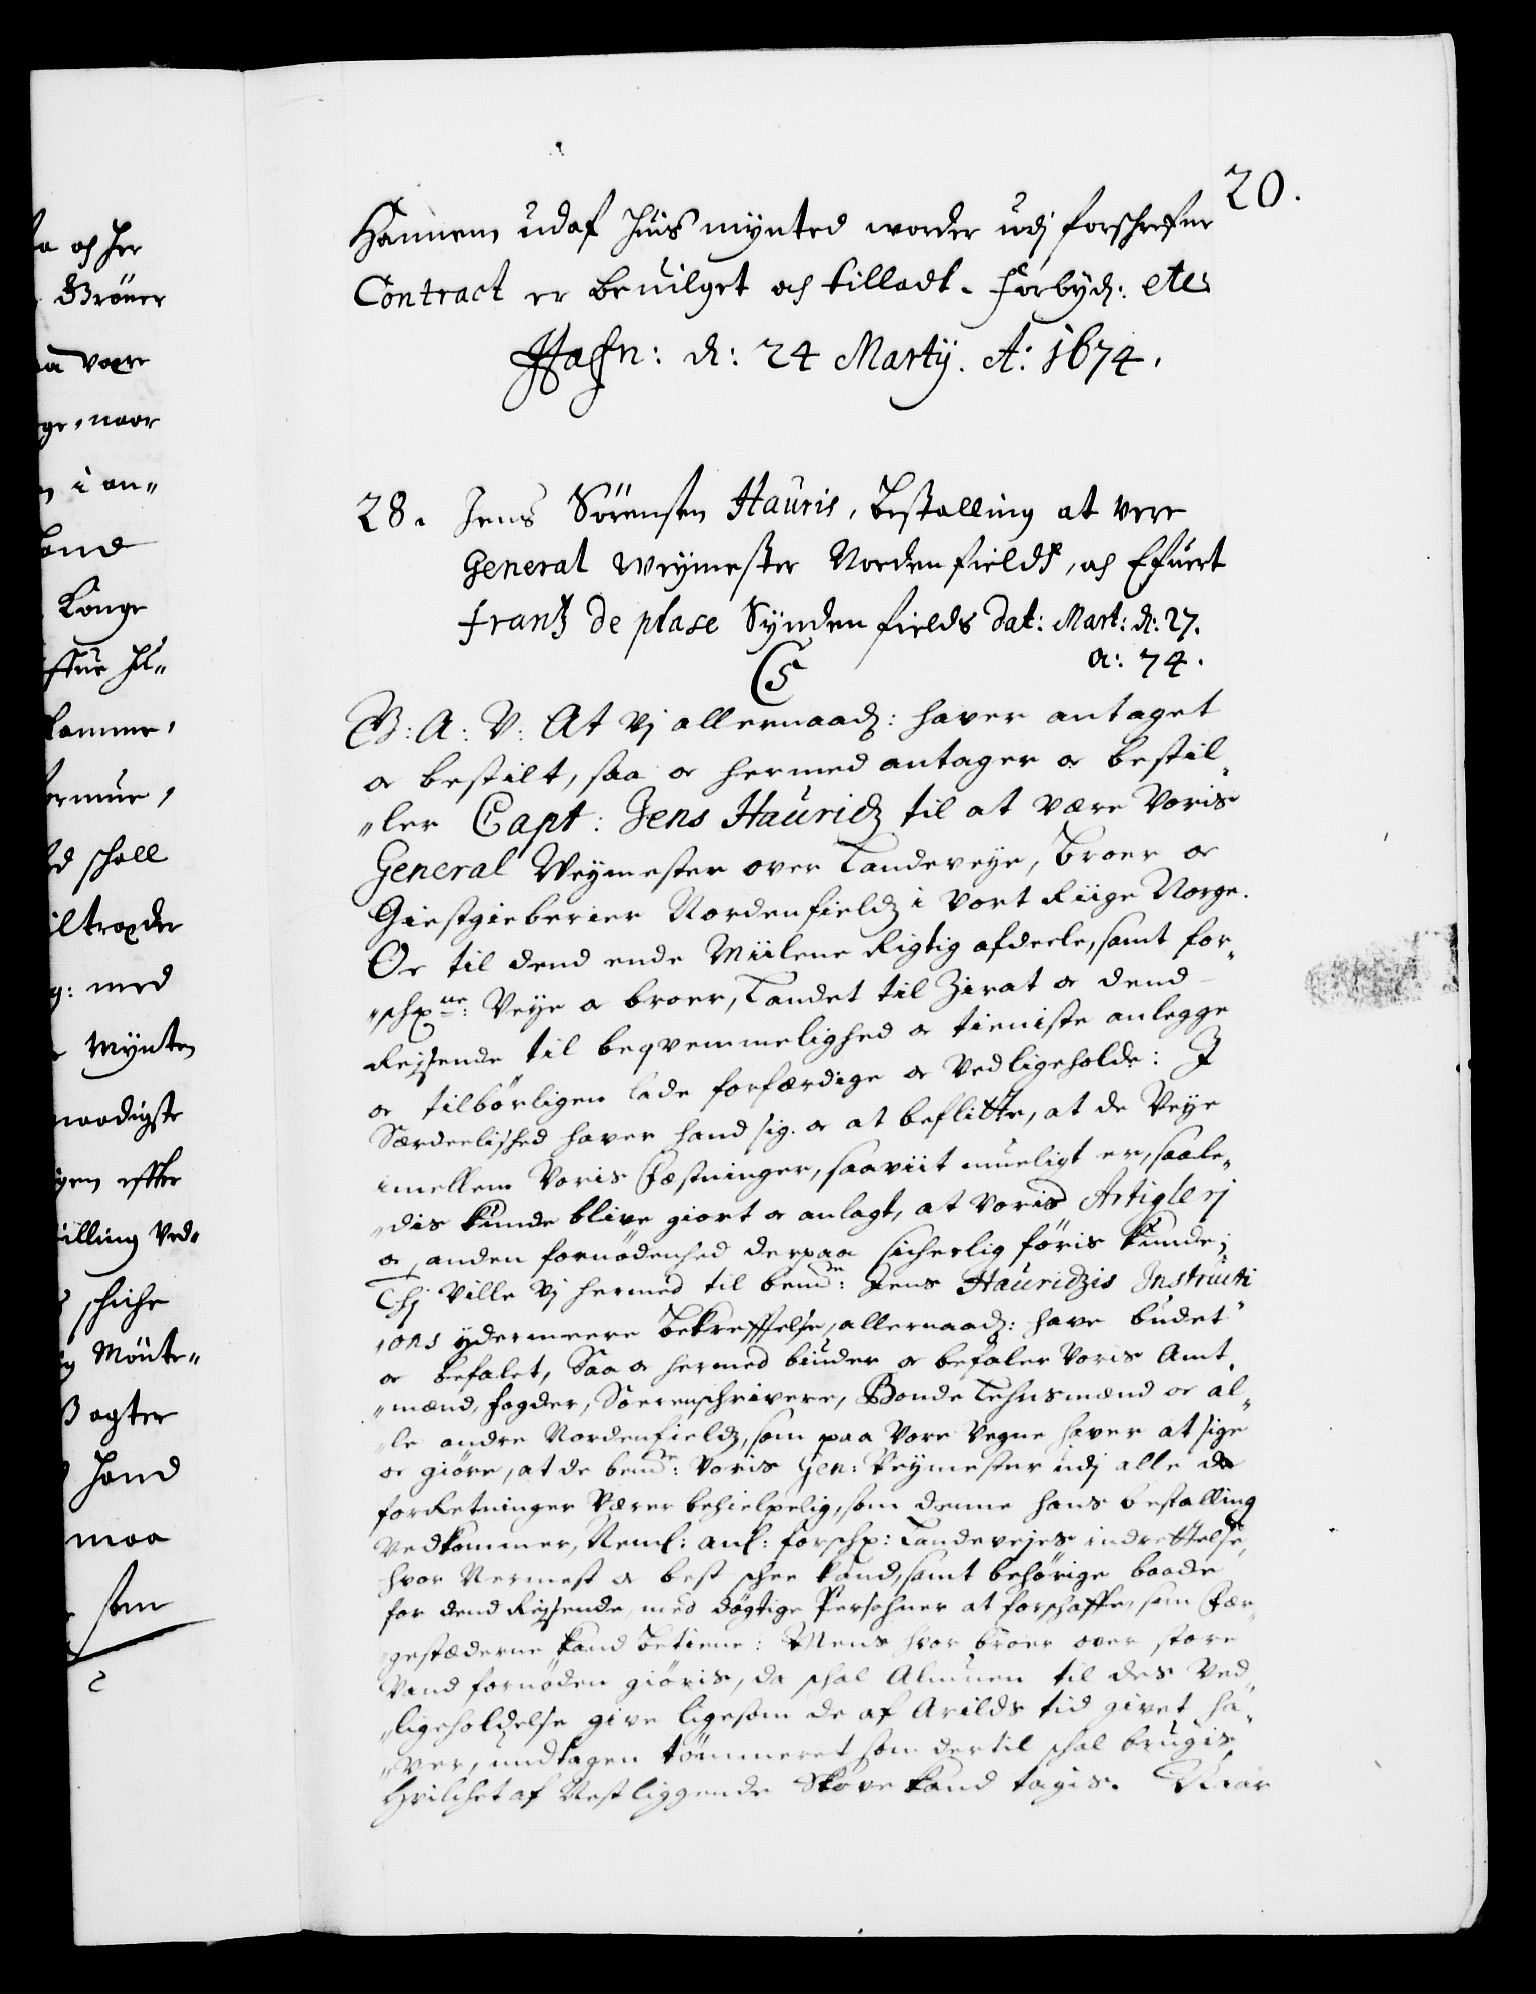 20.
Hannem udaf huis mynted worder udj forschrefne
Contract er beuilget och tilladt. Forbÿd: etc:
Hafn: d: 24 Martÿ. A: 1674.
28. Jens Sörensen Hauris, Bestalling at vere
General Weymester Nordenfields, och Efuert
Frantz de place Sÿndenfields dat: Mart: d: 27.
a: 74.
C5
G: A: V: At Vj allernaad: haver antaget
oc bestilt, saa oc hermed antager oc bestil„
„ler Capt: Jens Hauridz til at være Voris
General Weymester over Landeveye, Broer oc
Giestgieberier Nordenfieldz i vort Riige Norge.
Oc til dend ende Miilene Rigtig afdeele, samt for„
„schr.ne: Veye oc broer, Landet til Zirat oc dend
Rejsende til beqvemmelighed oc tieniste anlegge
oc tilbörligen lade forfærdige oc Vedligeholde: J
Særdeelished haver hand sig oc at beflitte, at de Veye
imellem Voris Fæstninger, saaviit mueligt er, saale„
„dis kunde blive giort oc anlagt, at Voris Artiglerj
oc anden fornödenhed derpaa sicherlig föris kunde;
Thj Ville Vj hermed til bemde: Jens Hauridzis Instructi
ions ydermeere Bekreffelse, allernaad: have budet
oc befalet, Saa oc hermed biuder oc befaler Voris Amt„
„mænd, fogder, Sorenschrivere, Bonde Lehnsmænd oc al„
„le andre Nordenfieldz, som paa Vore Vegne haver at sige
oc giöre, at de bemde: Voris Gen: Veymester udj alle de
forRetninger Værer behielpelig, som denne hans bestalling
Vedkommer, Neml: anl: forschr: Landevejes indrettelse,
hvor Nermest oc best schee kand, samt behörige baade
for dend Rejsende, med dögtige Persohner at forschaffe, som Fær„
gestæderne kand betiene: Mens hvor broer over store
Vand fornöden giöris, da schal Almuen til des Ved„
„ligeholdelse give ligesom de af Arilds tid givet ha„
„ver, undtagen tömmeret som dertil schal brugis
Hvilchet af Nest liggende Skove kand tagis. Naar